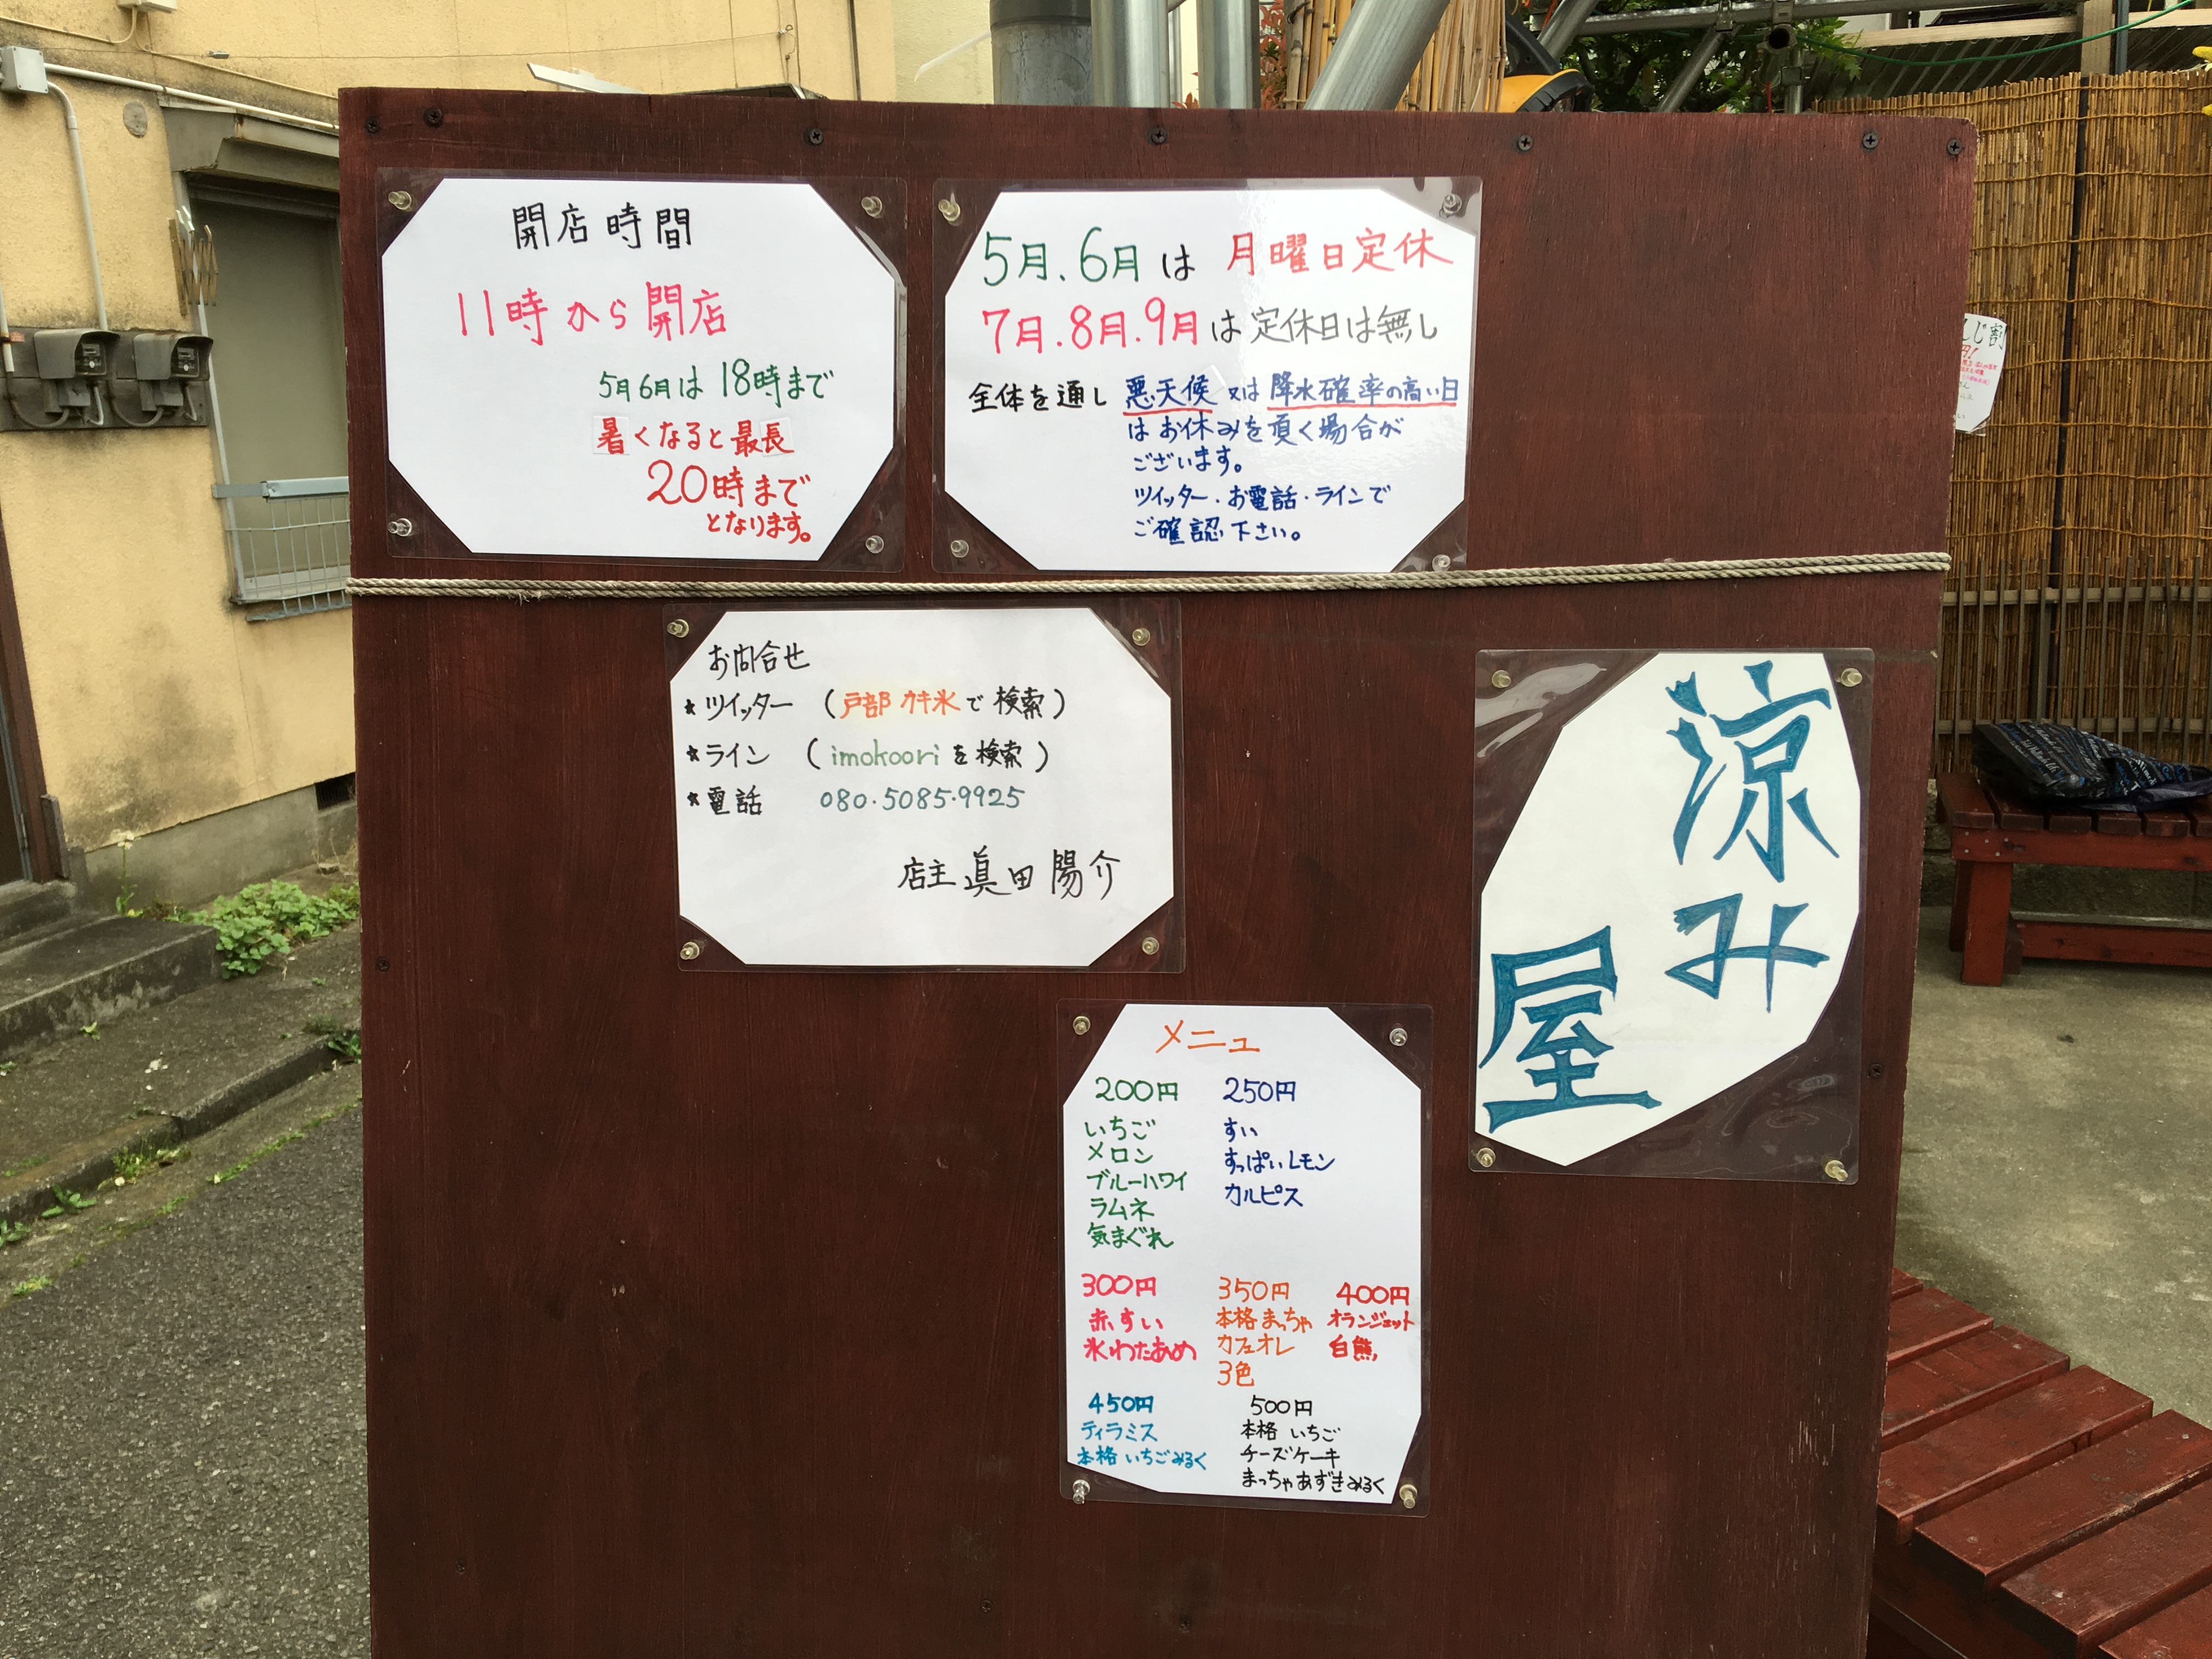 開店時間
11時から開店
5月6月は 18時まで
暑くなると最長
20時まで
となります。
5月.6月は 月曜日定休
7月.8月.9月は定休日は無し
全体を通し 悪天候 又は 降水確率の高い日
はお休みを頂く場合が
ございます。
ツイッター・お電話・ラインで
ご確認下さい。
お問合せ
★ツイッター (戸部カキ氷で検索)
★ライン (imokooriを検索)
★電話 080.5085.9925
店主 眞田陽介
涼み
屋
メニュー
200円
いちご
メロン
ブルーハワイ
ラムネ
気まぐれ
250円
すい
すっぱいレモン
カルピス
300円
赤すい
氷わたあめ
350円
本格まっちゃ
カフェオレ
3色
400円
オランジェット
白熊
450円
ティラミス
本格いちごみるく
500円
本格いちご
チーズケーキ
まっちゃあずきみるく